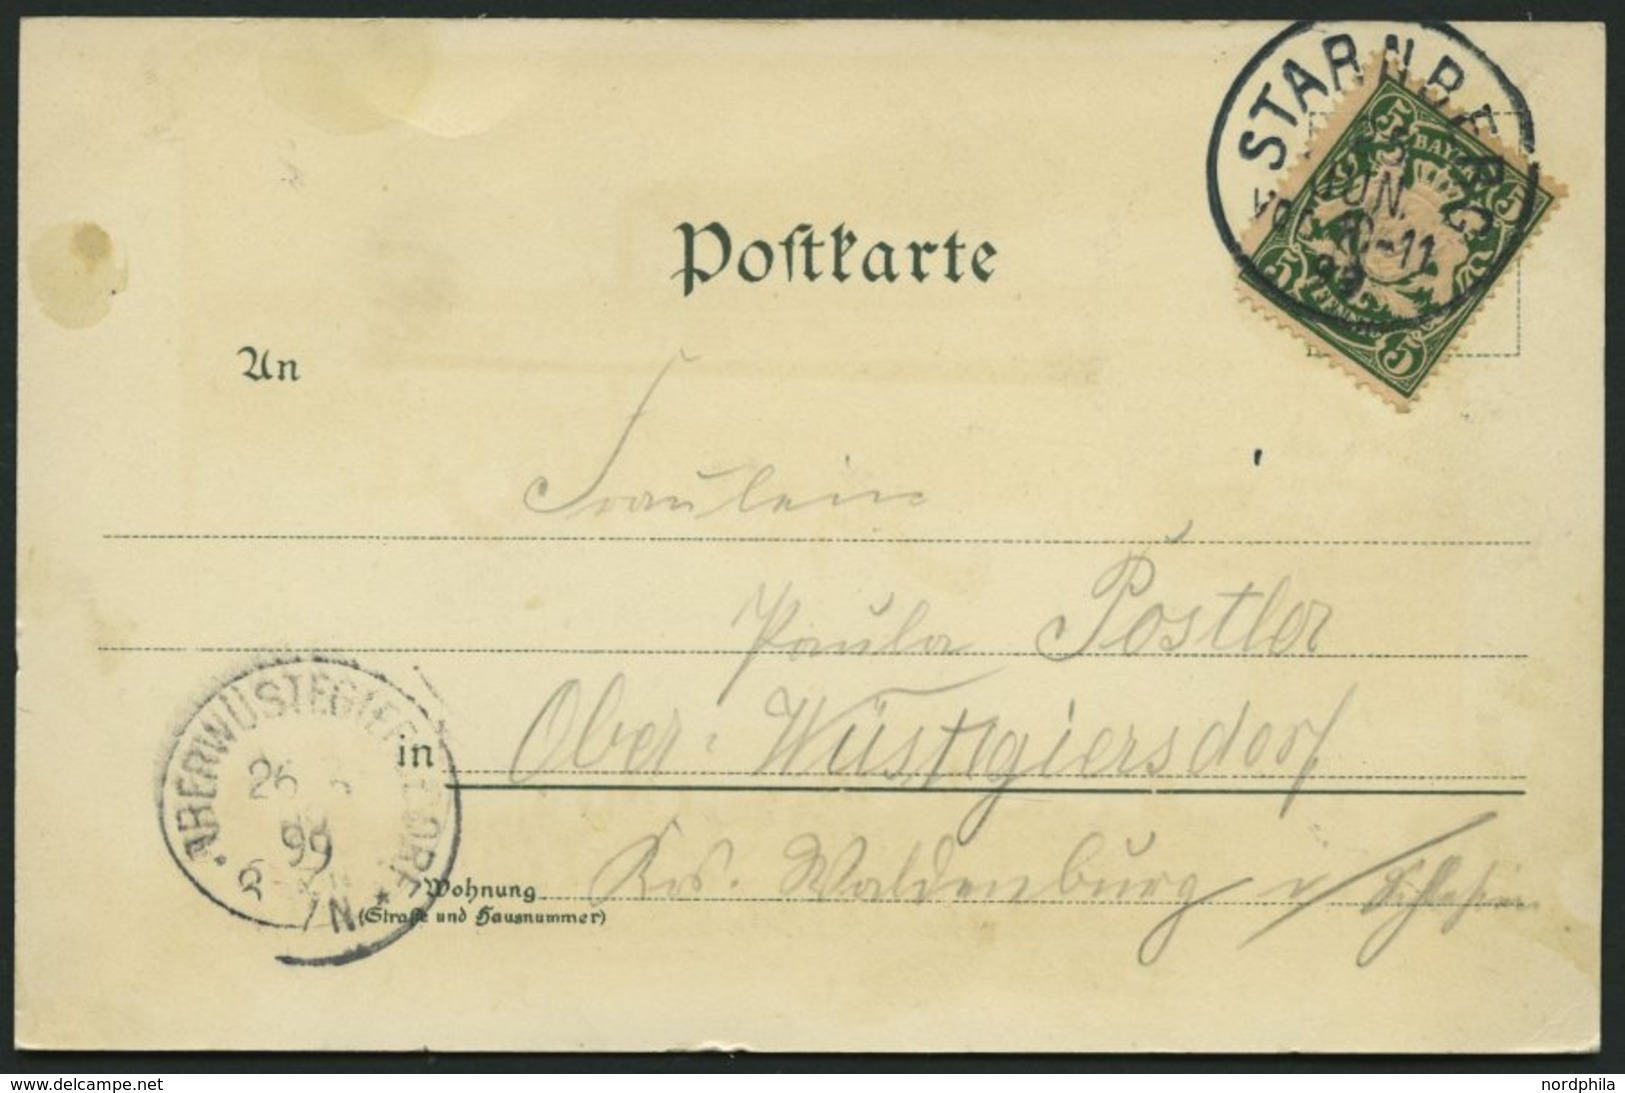 STARNBERG
JUN.
VOR. 10-11
99
5 BAYERN 5
5 5
Postkarte
An
Fräulein
Paula Postler
in Ober-Wüstegiersdorf
Wohnung
(Straße und Hausnummer)
Krs. Waldenburg i/Schlesien
OBERWÜSTEGIERSDORF
26 6
99
6-7N
www.delcampe.net
nordphila